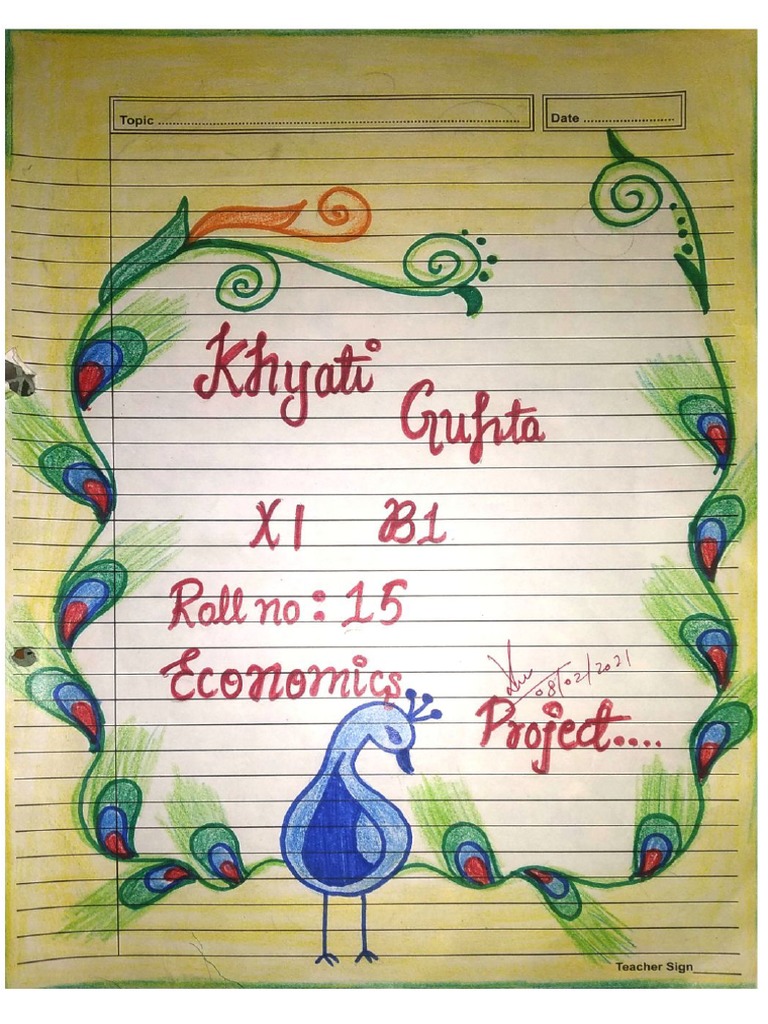 Topic ........................................................................................ Date ..........................
Khyati
Gupta
XI B1
Roll no : 15
08/02/2021
Economics
Project....
Teacher Sign____